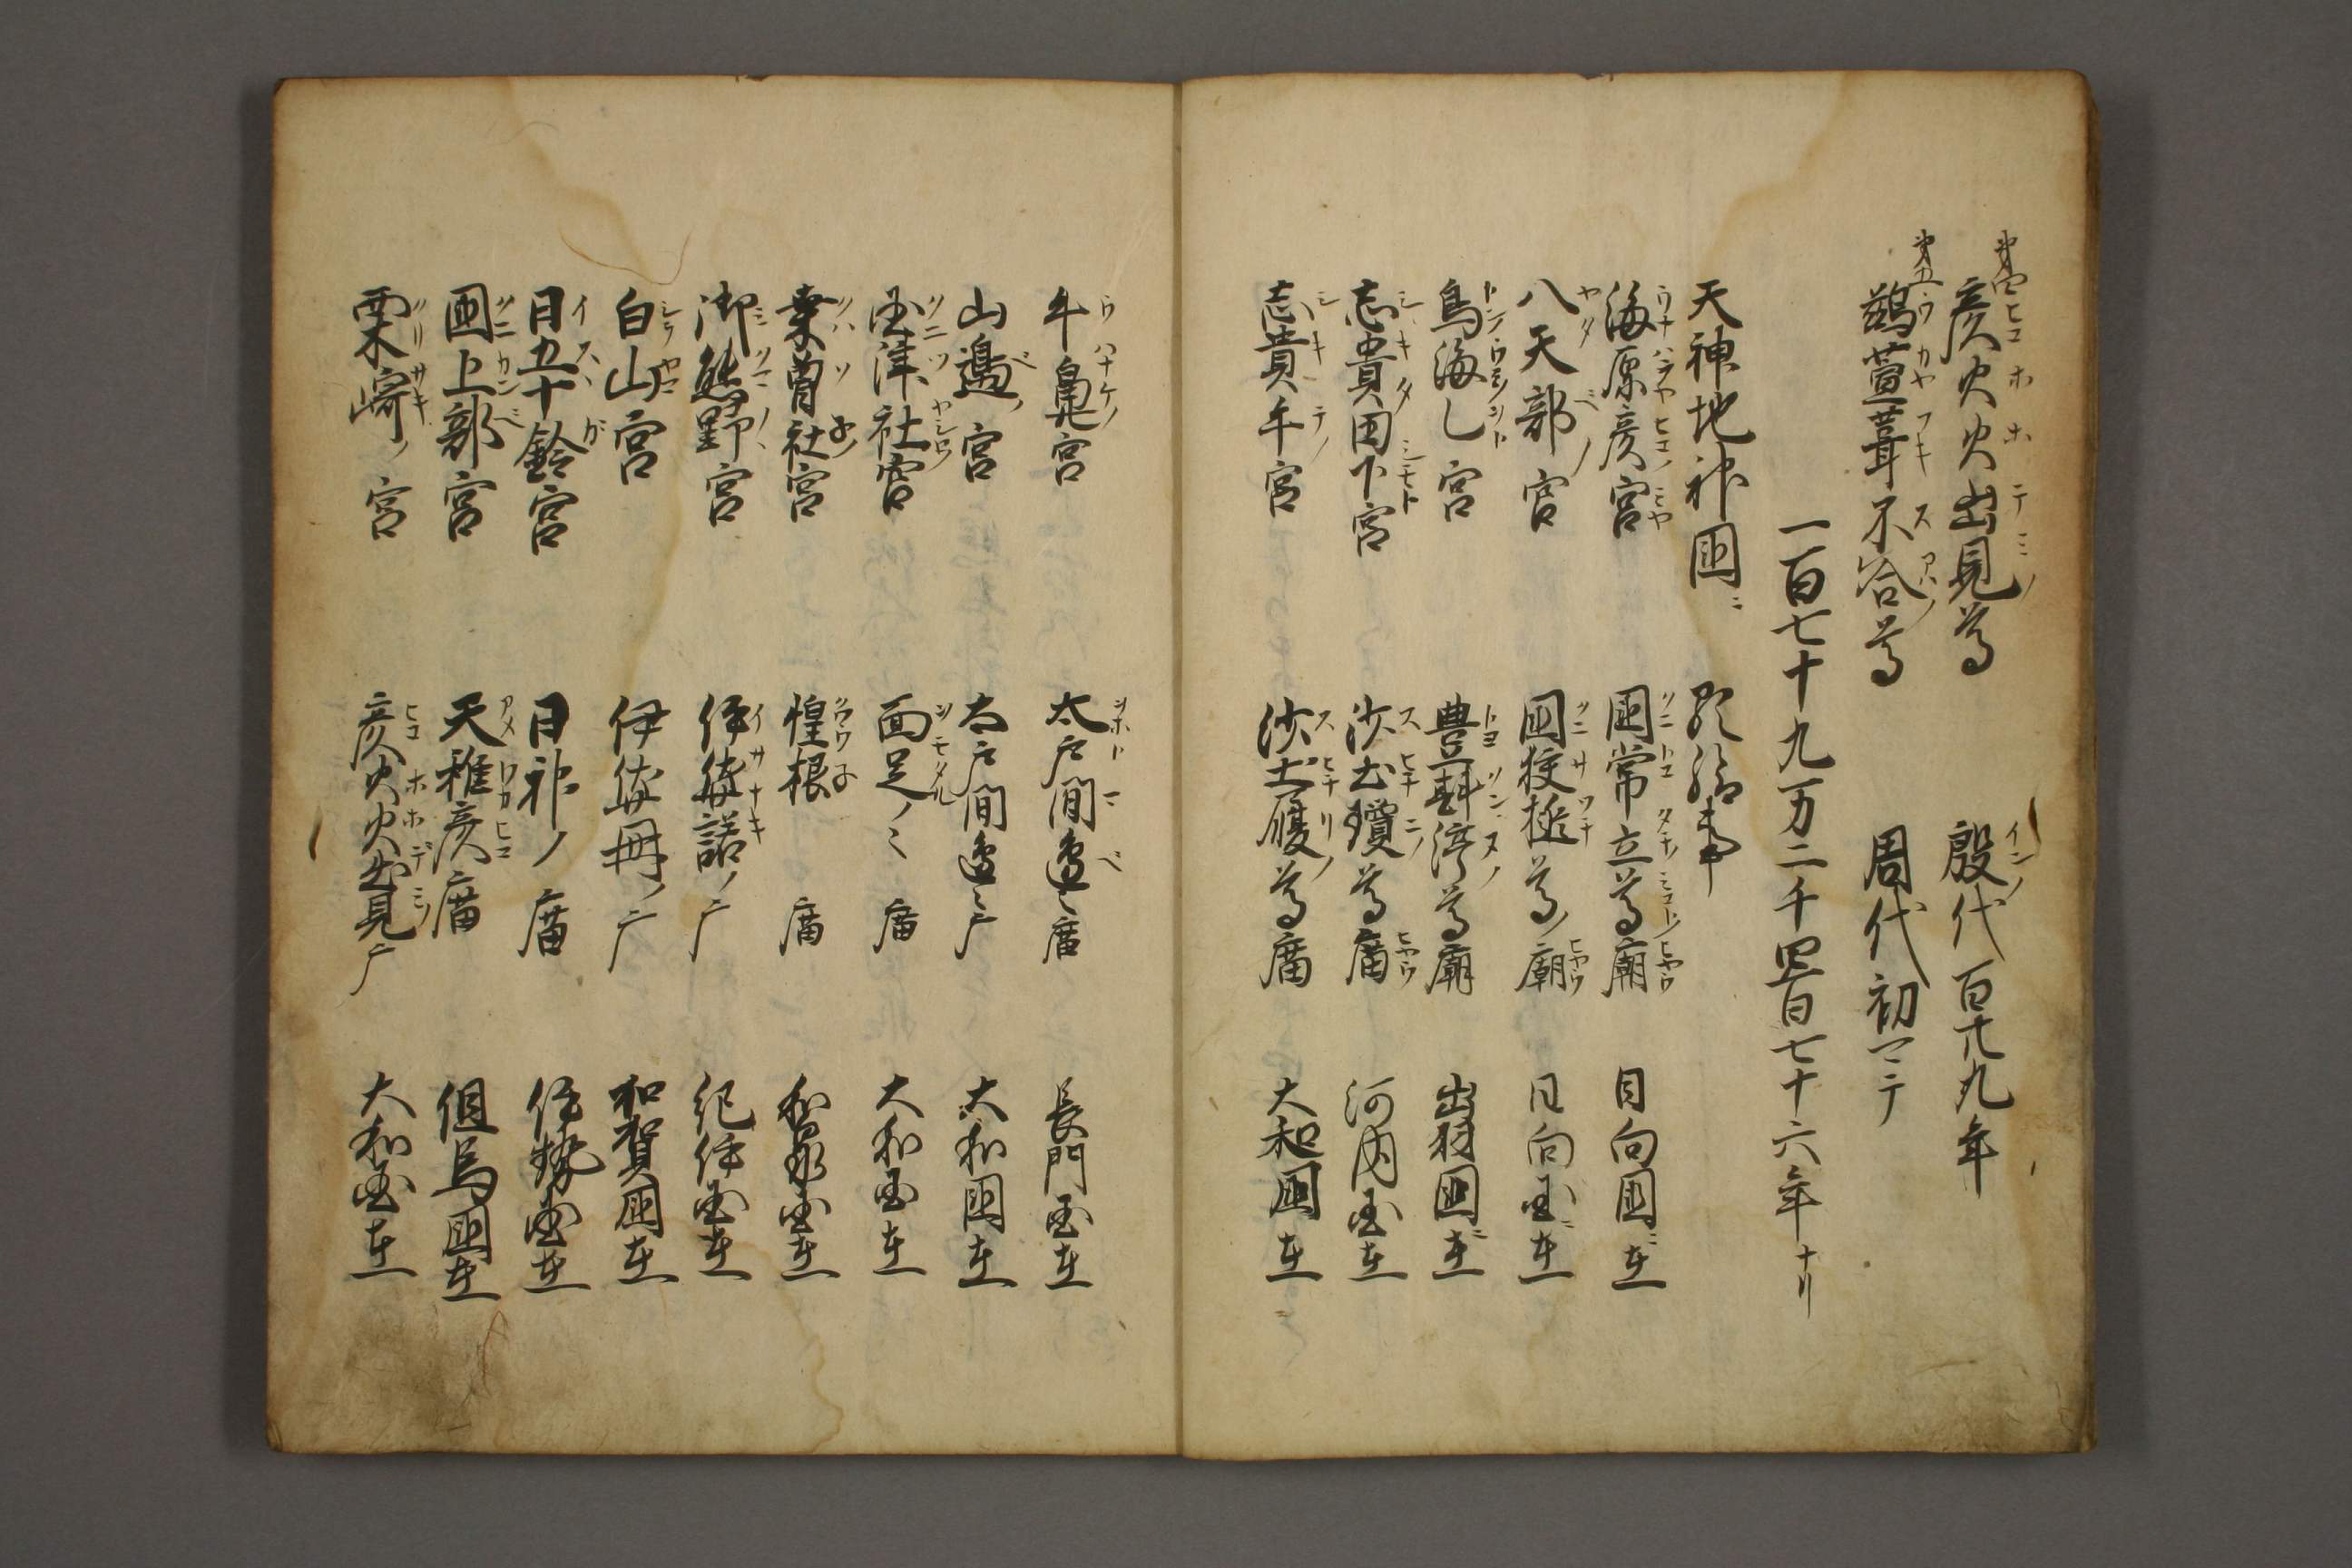 第四 彦火火出見尊 殷代百卅九年
第五 鵜萱葺不合尊 周代初マテ
一百七十九万二千四百七十六年ナリ
天神地神国ニ 顕給事
海原彦宮 国常立尊廟 日向国ニ在
八天部宮 国狭槌尊廟 日向国ニ在
鳥海し宮 豊斟渟尊廟 出羽国ニ在
志貴田下宮 沙土瓊尊庿 河内国在
志貴手宮 沙土瓊尊庿 大和国在
牛鼻宮 太戸間邊ミ庿 長門国在
山邊ノ宮 太戸間邊ミ广 大和国在
国津社宮 面足ノミ 庿 大和国在
葉曽社宮 惶根 庿 和泉国在
御熊野宮 伊弉諾ノ广 紀伊国在
白山宮 伊弉冊ノ广 加賀国在
日五十鈴宮 日神ノ 庿 伊勢国在
国上部宮 天稚彦庿 但馬国在
栗崎ノ宮 彦火火出見广 大和国在